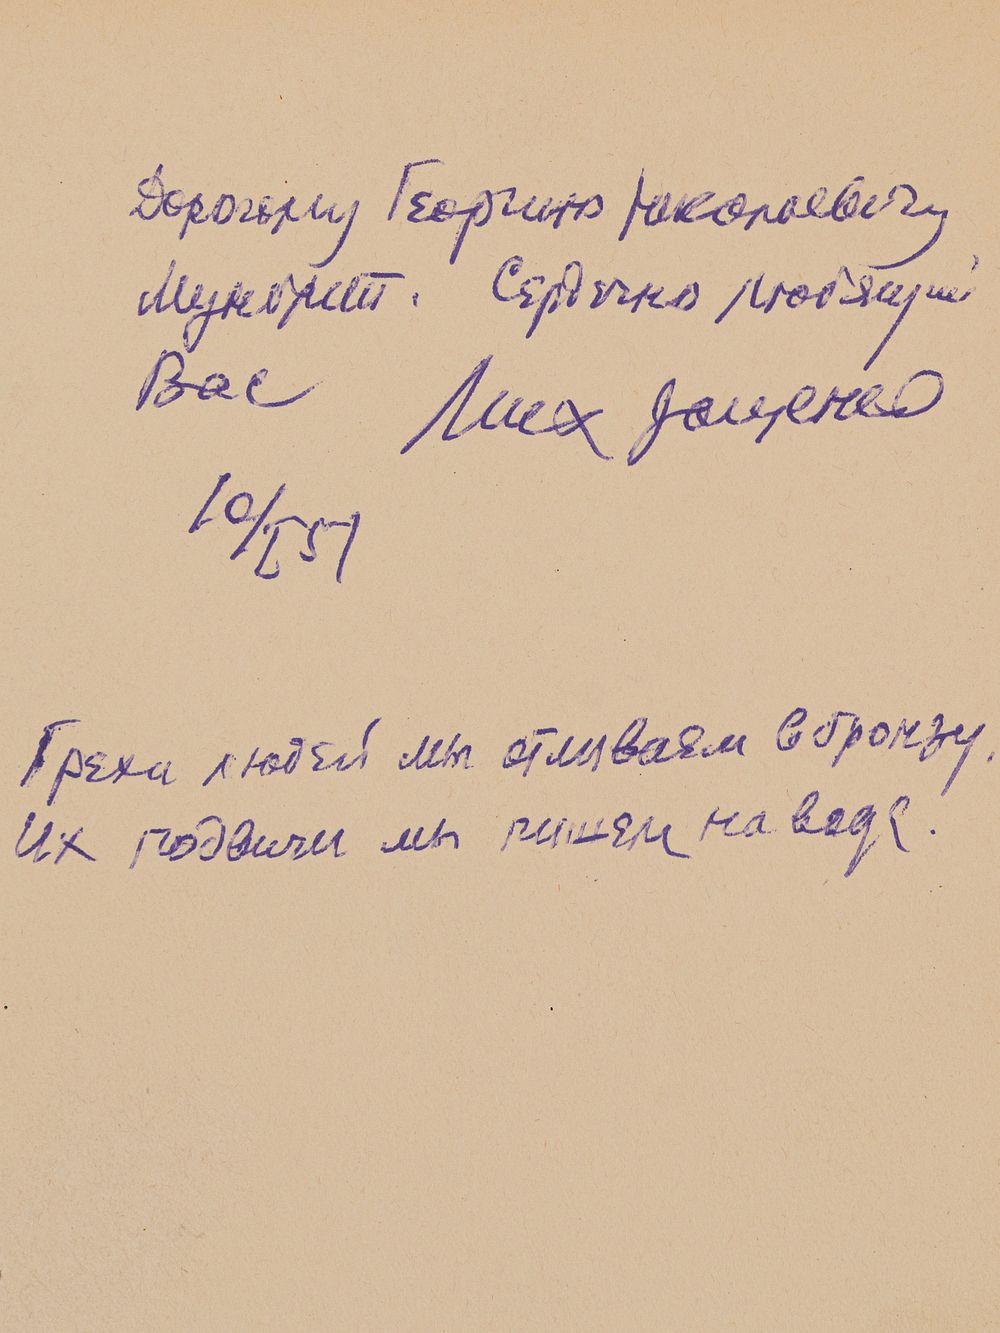 Дорогому Георгию Николаевичу
Мунблит. Сердечно любящий
Вас Мих Зощенко
10/I 51
Грехи людей мы отливаем в бронзу,
Их подвиги мы пишем на воде.